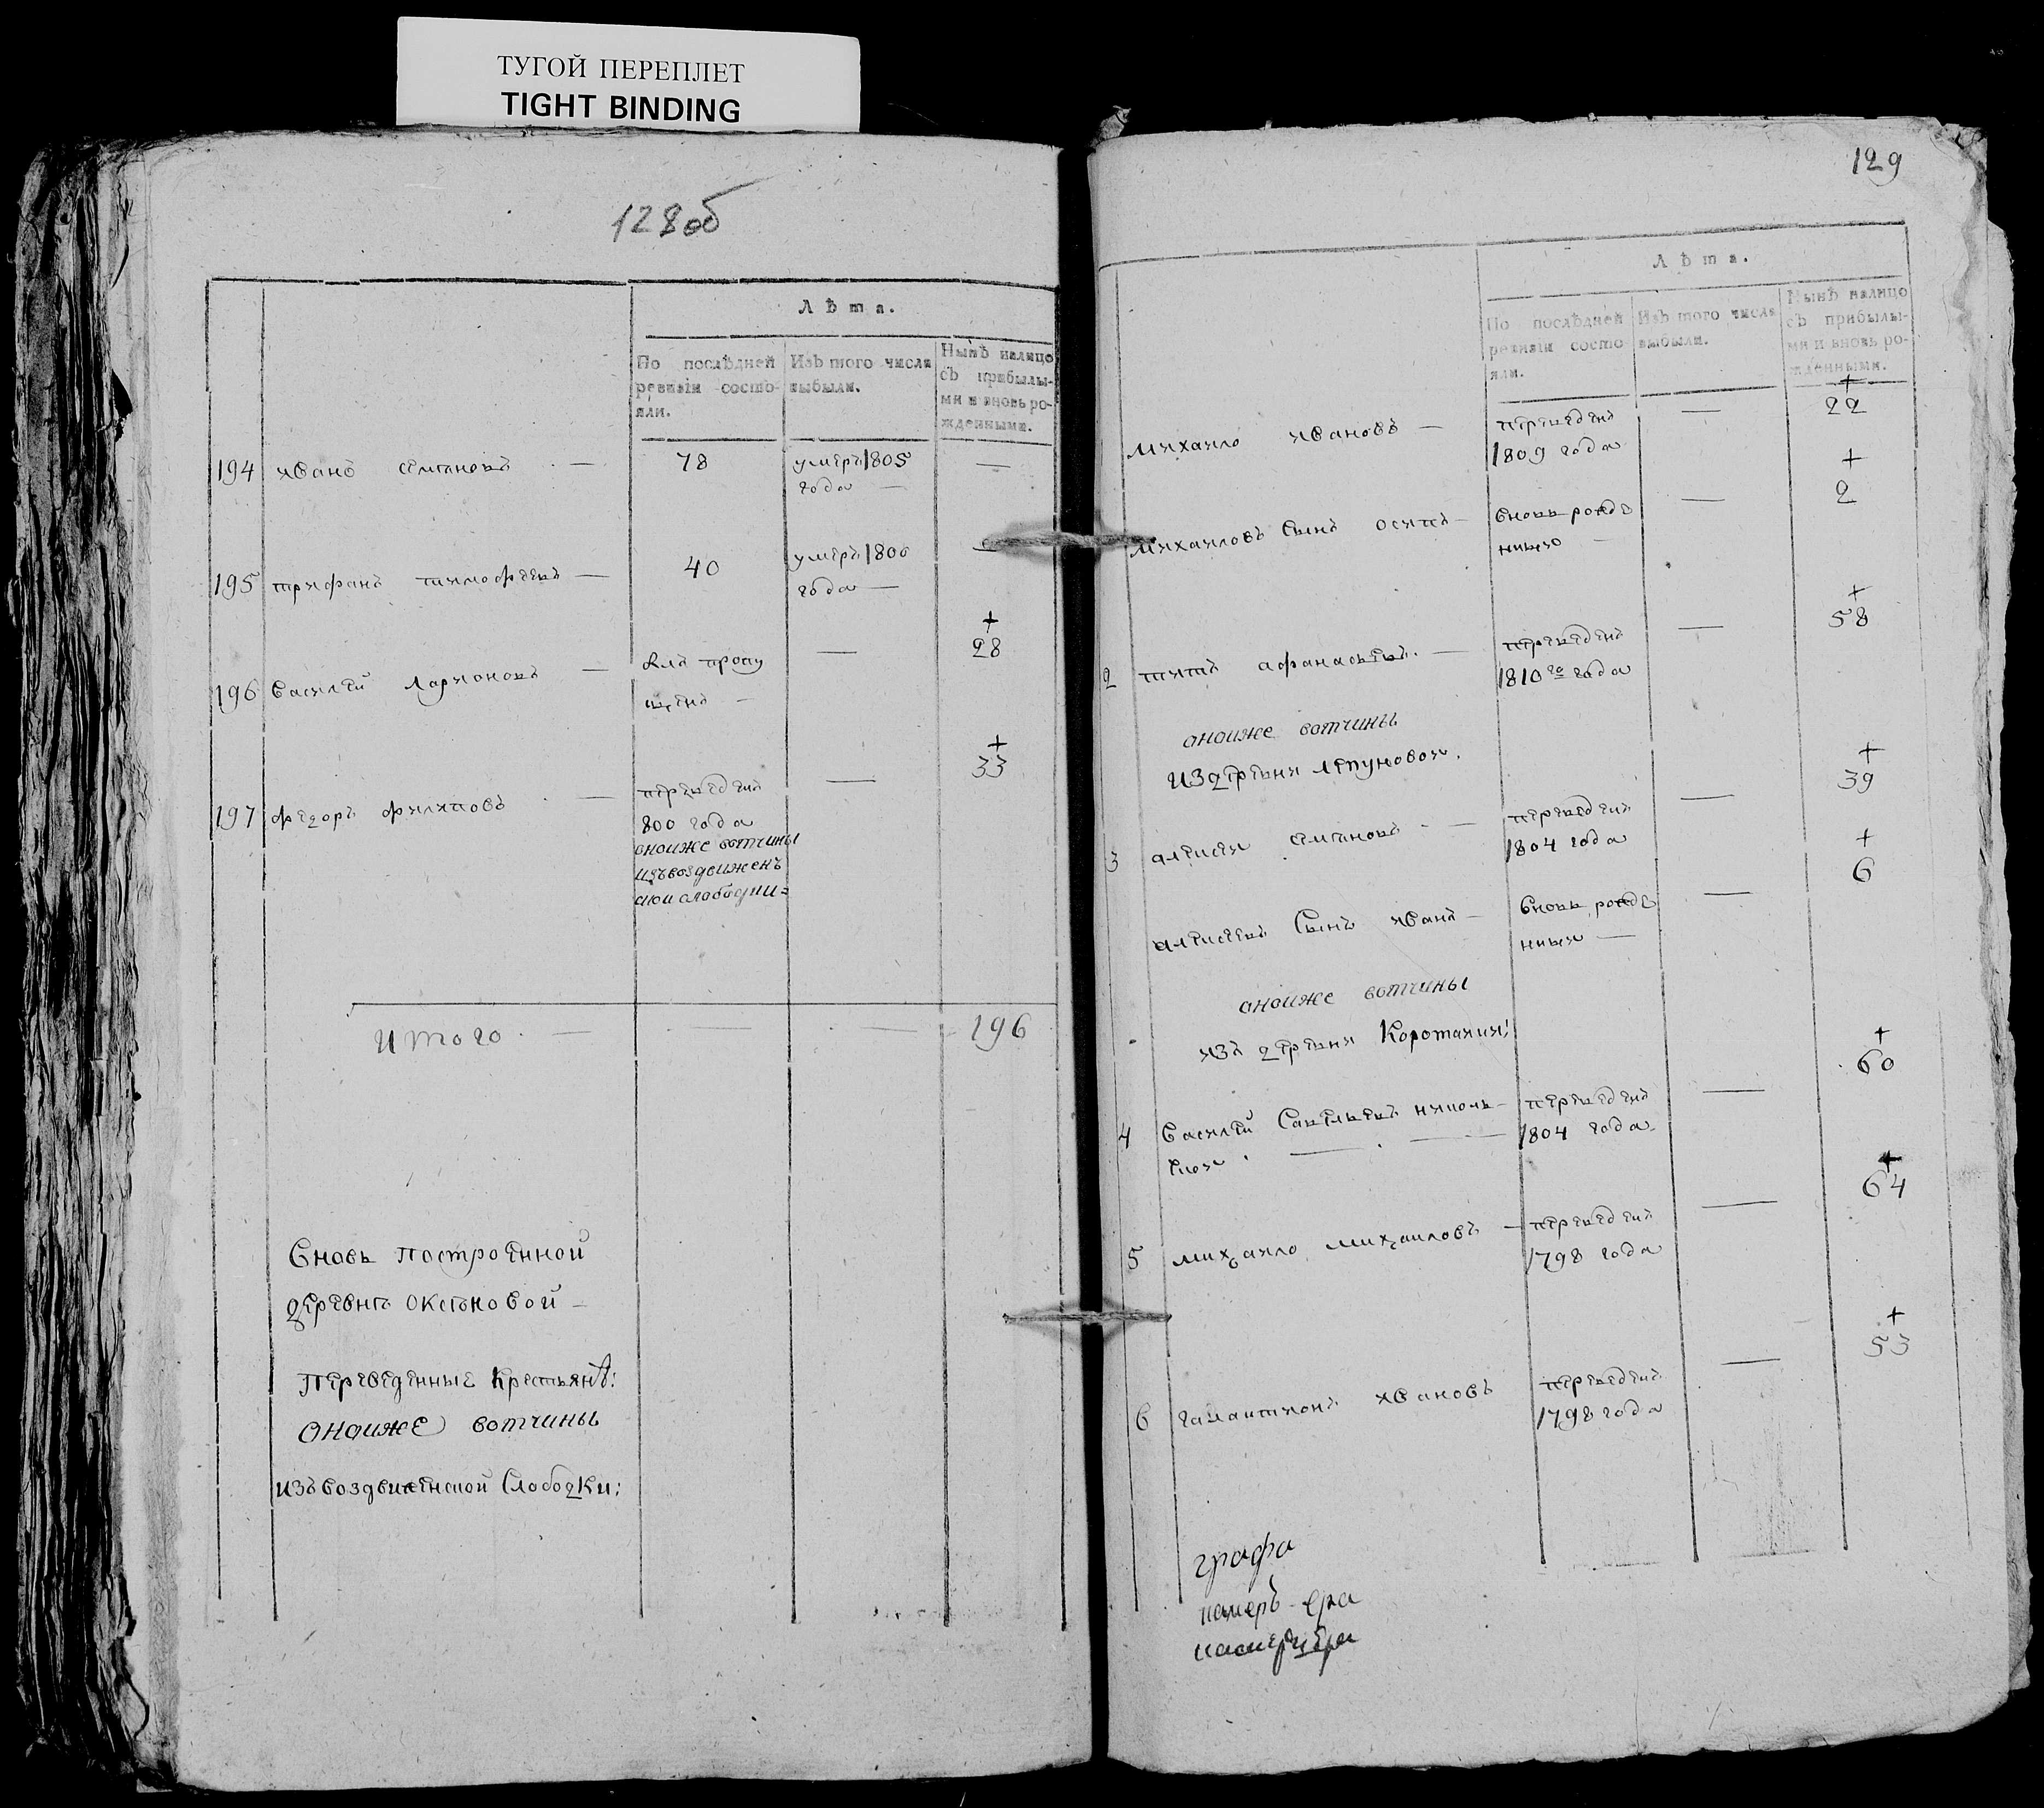 ТУГОЙ ПЕРЕПЛЕТ
TIGHT BINDING
128об
Лѣта.
По послѣдней ревизіи состо-яли.
Изъ того числа выбыли.
Нынѣ налицо съ прибылы-ми и вновь ро-жденными.
194 иванъ семеновъ — 78 умеръ 1805 —
года —
195 трифанъ тимофеевъ — 40 умеръ 1800 —
года —
+
196 василеи ларионовъ — былъ пропу — 28
щенъ —
+
197 федоръ филиповъ — переведенъ — 33
800 года
оноиже вотчины
изъ воздвиженъ
скои слабодки =
итого — — — 196
Вновь построенной
деревне оксеновой —
Переведенные крестьяне:
Оноиже вотчины
изъ воздвиженской Слободки:
129
Лѣта.
По послѣдней ревизіи состо яли.
Изъ того числа выбыли.
Нынѣ налицо съ прибылы-ми и вновь ро-жденными.
+
михаило ивановъ — переведенъ — 22
1809 года
+
михаиловъ Сынъ осипъ — вновь рожде — 2
ныи —
+
2 титъ афанасьевъ — переведенъ — 58
1810го года
оноиже вотчины
из деревни лепуновои.
+
3 алексеи семеновъ — переведенъ — 39
1804 года
+
алексеевъ Сынъ иванъ — вновь рожде — 6
ныи —
оноиже вотчины
изъ деревни Коротыни:
+
4 василеи Савельевъ николь- переведенъ — 60
скои — 1804 года
+
5 михаило михаиловъ — переведенъ — 64
1798 года
+
6 галактионъ ивановъ переведенъ — 53
1798 года
графа
камеръ-ера